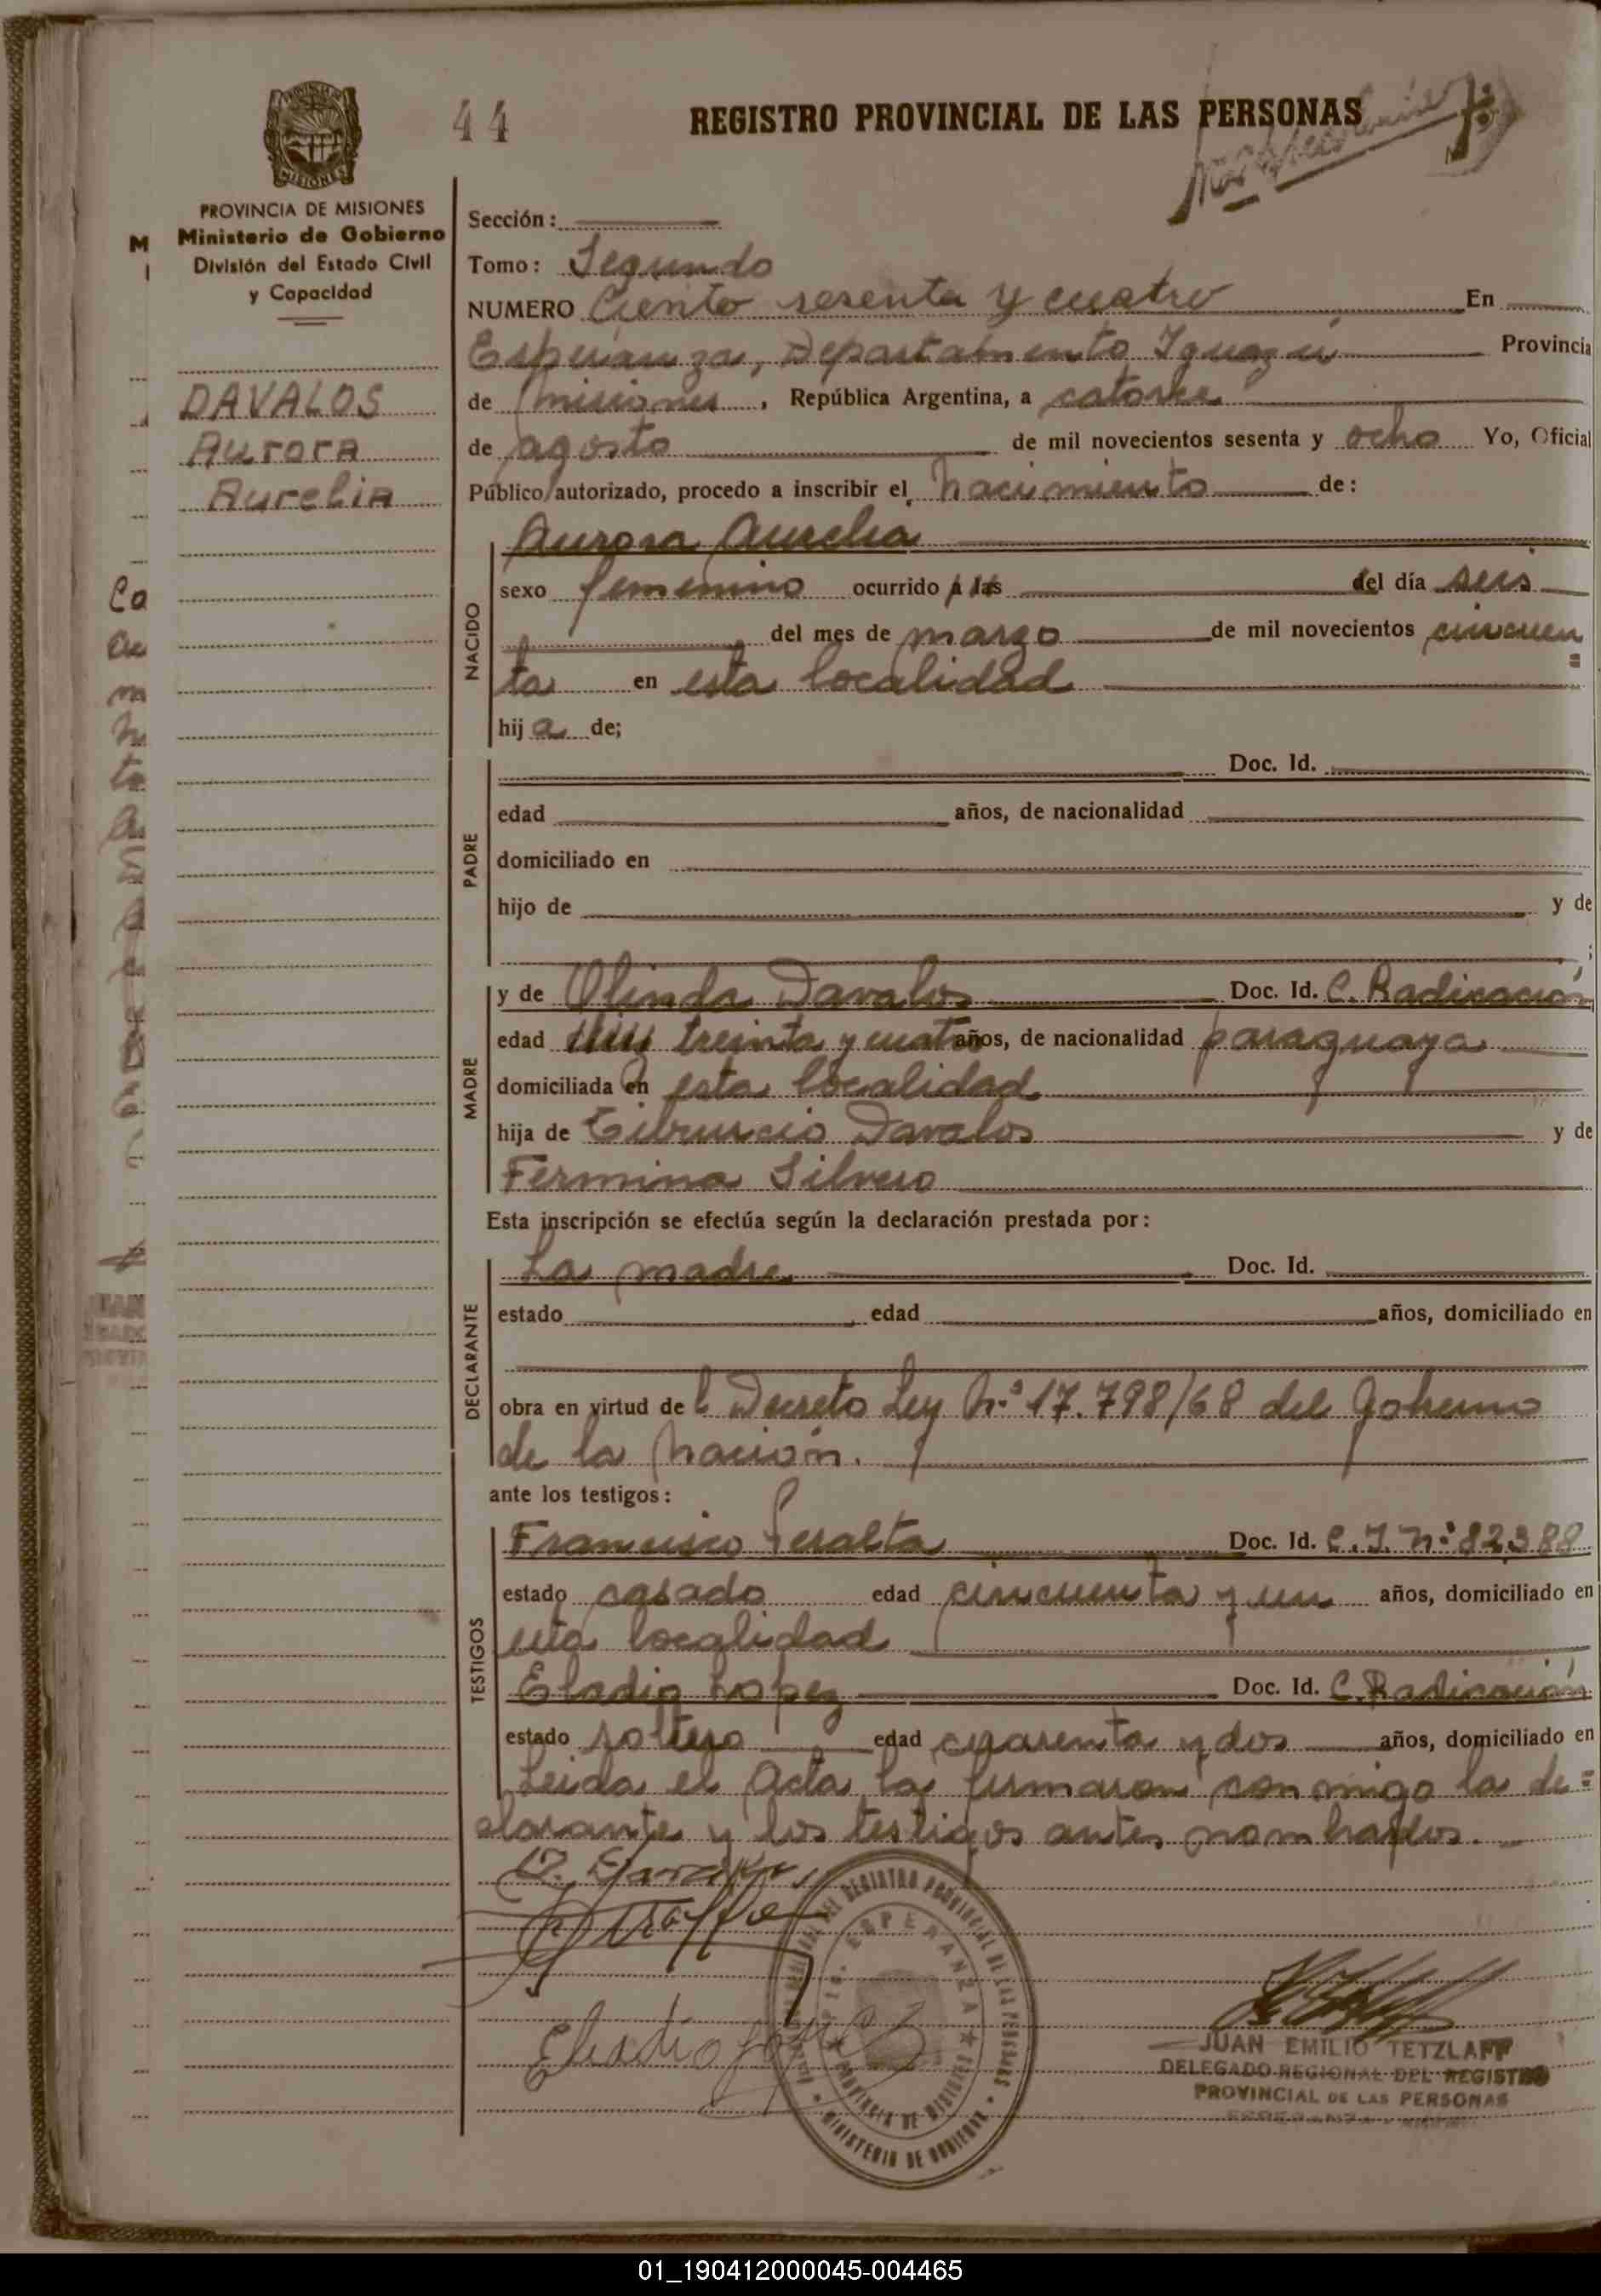 44
REGISTRO PROVINCIAL DE LAS PERSONAS
PROVINCIA DE MISIONES
Ministerio de Gobierno
División del Estado Civil
y Capacidad
DAVALOS
Aurora
Aurelia
Sección:
Tomo: Segundo
NUMERO Ciento sesenta y cuatro En
Esperanza, Departamento Iguazú Provincia
de Misiones, República Argentina, a catorce
de agosto de mil novecientos sesenta y ocho Yo, Oficial
Público autorizado, procedo a inscribir el nacimiento de:
NACIDO
Aurora Aurelia
sexo femenino ocurrido a las del día seis
del mes de marzo de mil novecientos cincuen
ta en esta localidad
hija de;
PADRE
Doc. Id.
edad años, de nacionalidad
domiciliado en
hijo de y de
MADRE
y de Olinda Davalos Doc. Id. C. Radicación
edad treinta y cuatro años, de nacionalidad paraguaya
domiciliada en esta localidad
hija de Tibrucio Davalos y de
Fermina Silvero
Esta inscripción se efectúa según la declaración prestada por:
DECLARANTE
La madre Doc. Id.
estado edad años, domiciliado en
obra en virtud del Decreto Ley Nº 17.798/68 del Gobierno
de la Nación.
ante los testigos:
TESTIGOS
Francisco Peralta Doc. Id. C.I. Nº 82388
estado casado edad cincuenta y un años, domiciliado en
esta localidad
Eladio Lopez Doc. Id. C. Radicación
estado soltero edad cuarenta y dos años, domiciliado en
Leida el Acta la firmaron conmigo la de=
clarante y los testigos antes nombrados.
Eladio
ESPERANZA
PROVINCIA DE MISIONES
MINISTERIO DE GOBIERNO
JUAN EMILIO TETZLAFF
DELEGADO REGIONAL DEL REGISTRO
PROVINCIAL DE LAS PERSONAS
01_190412000045-004465